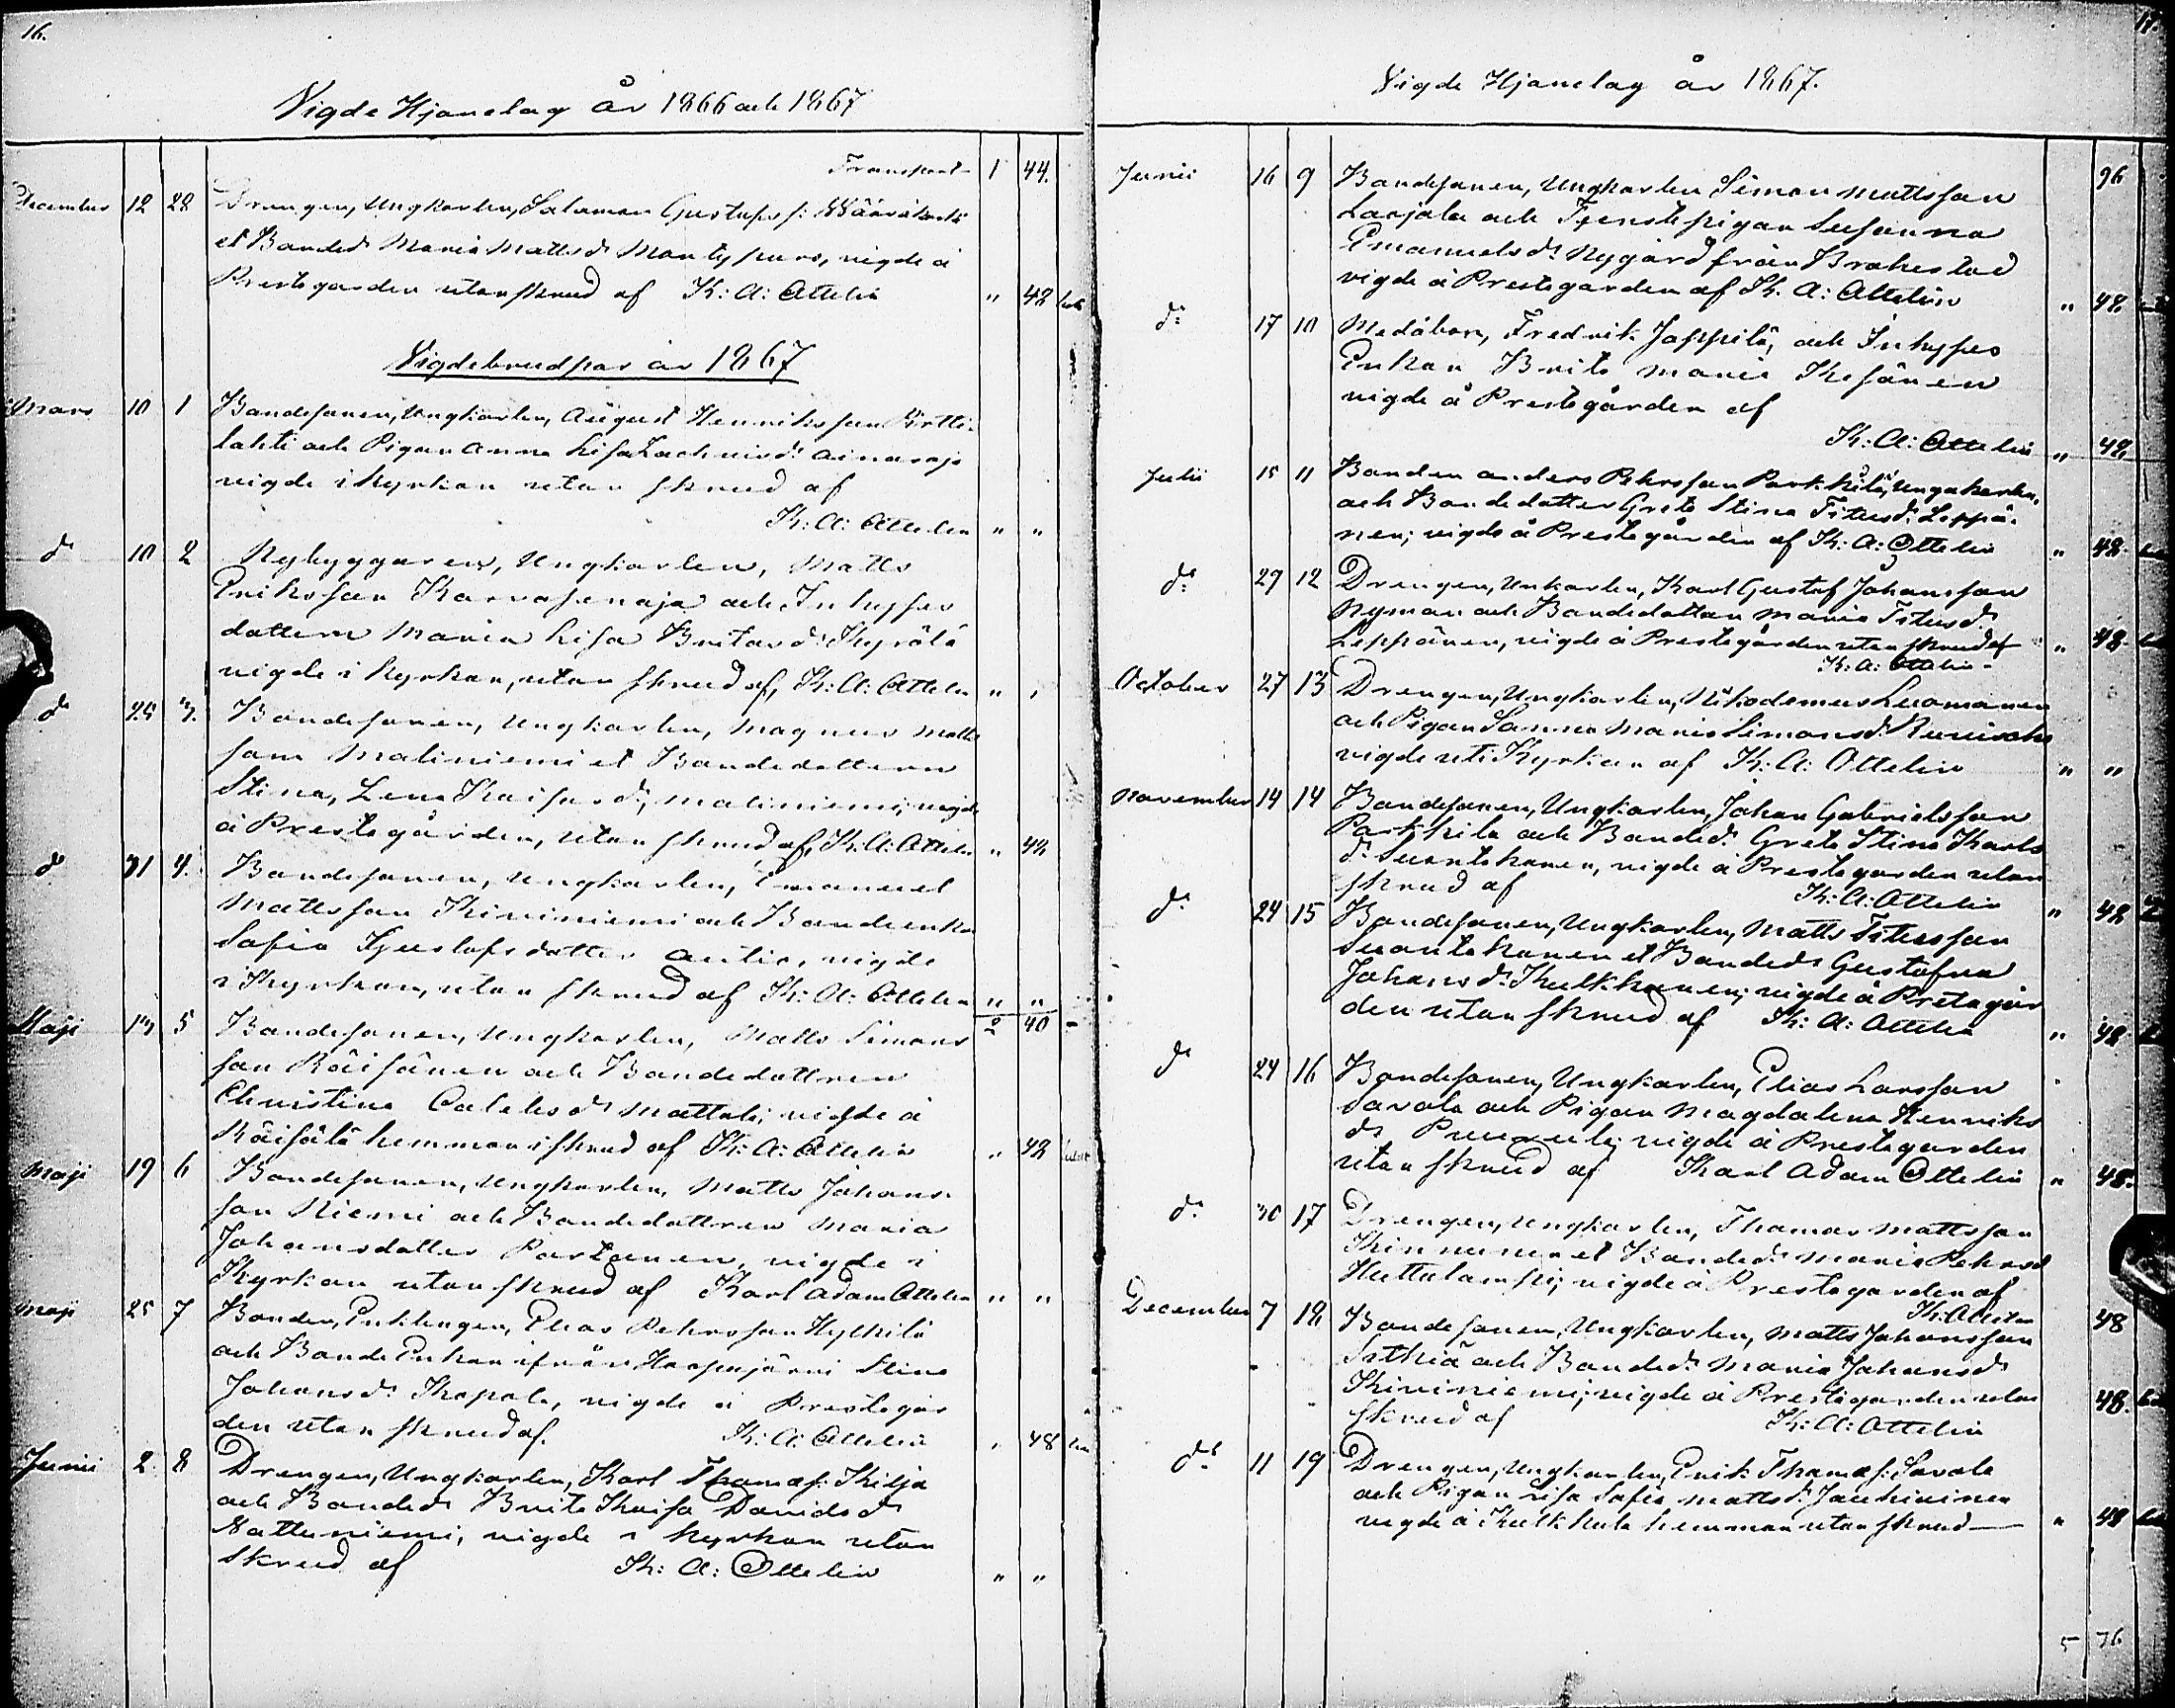 16.
Vigde Hjonelag år 1866 och 1867
Transport 1 44.
December 12 28 Drengen, Ungkarlen, Salomon Gustafs s:
et Bonded. Maria Mattsd. vigde å
Prestgården utan skrud af K: A: Ottelin " 48
Vigde brudpar år 1867
Mars 10 1 Bondesonen, Ungkarlen, August Henriksson Pirtti-
lahti och Pigan Anna Lisa Zachrisd. Ainasoja
vigde i kyrkan utan skrud af
K: A: Ottelin " "
do 10 2 Nybyggaren, Ungkarlen, Matts
Eriksson Karvasenaja och Inhyses
dottern Maria Lisa Britasd. Kyrölä
vigde i kyrkan, utan skrud af, K: A: Ottelin " "
do 25 3. Bondesonen, Ungkarlen, Magnus Matts
son Maliniemi et Bondedottern
Stina, Lena Kaisasd. Maliniemi; vigde
å Prestegården, utan skrud af, K: A: Ottelin " 48
do 31 4. Bondesonen, Ungkarlen, Emanuel
Mattsson Kiviniemi och Bondeenka
Sofia Gustafsdotter Autio, vigde
i Kyrkan, utan skrud af K: A: Ottelin " "
2 40
Maji 13 5 Bondesonen, Ungkarlen, Matts Simons
son Räisänen och Bondedottren
Christina Calebsd. Mattila; vigde å
Räisälä hemman i skrud af K: A: Ottelin " 48
Maji 19 6 Bondesonen, Ungkarlen, Matts Johans
son Niemi och Bondedottren Maria
Johansdotter Partanen, vigde i
Kyrkan utan skrud af Karl Adam Ottelin " "
Maji 25 7 Bonden, Enklingen, Elias Pehrsson Hylkilä
och Bonde Enkan ifrån Haapajärvi Stina
Johansd. Kopola, vigde å Prestegår
den utan skrud af. K: A: Ottelin " 48
Junii 2 8 Drengen, Ungkarlen, Karl Thomas s: Kilja
och Bonded. Brita Kaisa Davidsd.
Nattuniemi, vigde i kyrkan utan
skrud af K: A: Ottelin " "
17.
Vigde Hjonelag år 1867.
96
Junii 16 9 Bondesonen, Ungkarlen Simon Mattsson
Larjala och Tjenstepigan Susanna
Emanuelsd. Nygård från Brahestad
vigde å Prestegården af K. A: Ottelin " 48.
do 17 10 Mådåbon, Fredrik Jappilä, och Inhyses
Enkan Brita Maria Kesänen
vigde å Prestegården af
K: A: Ottelin " 48
Julii 15 11 Bonden Anders Pehrsson Parkkila, Ungkarlen,
och Bondedotter Greta Stina Titusd. Leppä-
nen; vigde å Prestegården af K: A: Ottelin " 48.
do 29 12 Drengen, Unkarlen, Karl Gustaf Johansson
Nyman och Bondedottern Maria Titusd.
Leppänen, vigde å Prestegården utan skrud af " 48.
K: A: Ottelin
October 27 13 Drengen, Ungkarlen, Nikodemus Luomanen
och Pigan Sanna Maria Simonsd.
vigde uti Kyrkan af K: A: Ottelin " "
November 14 14 Bondesonen, Ungkarlen, Johan Gabrielsson
Parkkila och Bonded. Greta Stina Karls
d. Suontakanen, vigde å Prestegården utan
skrud af K: A: Ottelin " 48
do 24 15 Bondesonen, Ungkarlen, Matts Titusson
Suontakanen et Bonded. Gustafva
Johansd. Kulkkanen; vigde å Prestegår
den utan skrud af K: A: Ottelin " 48
do 24 16 Bondesonen, Ungkarlen, Elias Larsson
Savola och Pigan Magdalena Henriks
d. vigde å Prestegården
utan skrud af Karl Adam Ottelin " 48.
do 30 17 Drengen, Ungkarlen, Thomas Mattsson
Kinnunen et Bonded. Maria Pehrsd
Huttulampi; vigde å Prestegården af
K: A: Ottelin 48
December 7 18 Bondesonen, Ungkarlen, Matts Johansson
och Bonded. Maria Johansd.
Kiviniemi; vigde å Prestegården utan
skrud af K: A: Ottelin 48.
do 11 19 Drengen, Ungkarlen, Erik Thomas s: Savola
och Pigan Lisa Sofia Mattsd. Jauhiainen
vigde å Kulkkula hemman utan skrud — " 48
5 76